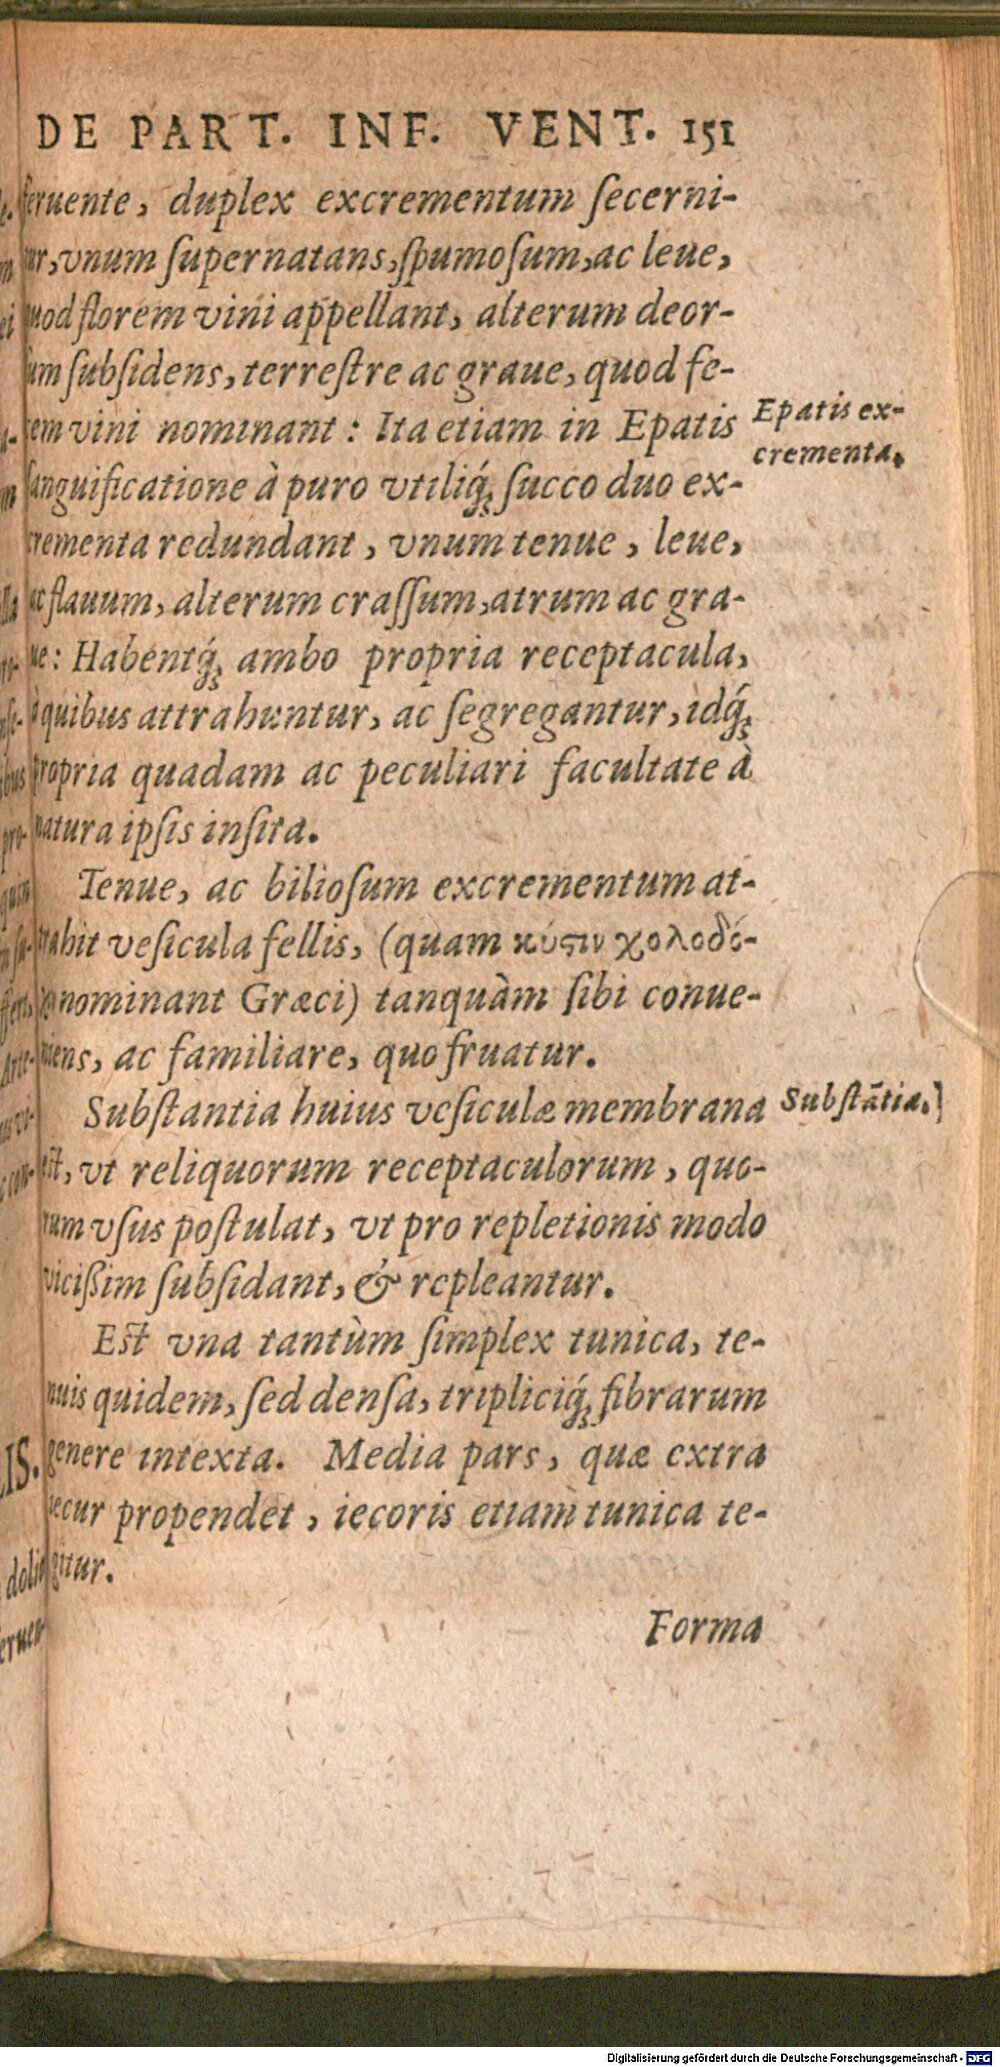 DE PART. INF. VENT. 151
feruente, duplex excrementum ſecerni-
tur, vnum ſupernatans, ſpumoſum, ac leue,
quod florem vini appellant, alterum deor-
ſum ſubſidens, terreſtre ac graue, quod fe-
cem vini nominant : Ita etiam in Epatis
Epatis ex-
crementa.
ſanguificatione à puro vtiliq́ꝫ ſucco duo ex-
crementa redundant, vnum tenue, leue,
ac flauum, alterum craſſum, atrum ac gra-
ue: Habentq́ꝫ ambo propria receptacula,
à quibus attrahuntur, ac ſegregantur, idq́ꝫ
propria quadam ac peculiari facultate à
natura ipſis inſita.
Tenue, ac bilioſum excrementum at-
trahit veſicula fellis, (quam κύϛιν χολοδό-
nominant Græci) tanquàm ſibi conue-
niens, ac familiare, quo fruatur.
Subſtantia huius veſiculæ membrana
Subſtãtia.
eſt, vt reliquorum receptaculorum, quo-
rum vſus poſtulat, vt pro repletionis modo
viciſſim ſubſidant, & repleantur.
Eſt vna tantùm ſimplex tunica, te-
nuis quidem, ſed denſa, tripliciq́ꝫ fibrarum
genere intexta. Media pars, quæ extra
iecur propendet, iecoris etiam tunica te-
gitur.
Forma
Digitalisierung gefördert durch die Deutsche Forschungsgemeinschaft - DFG